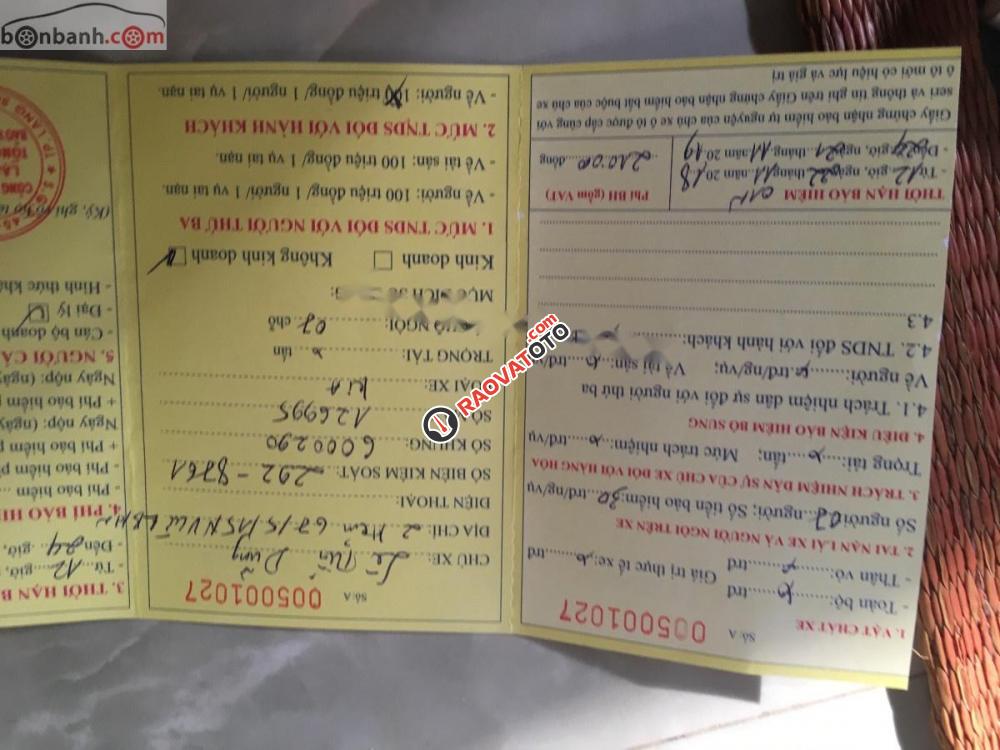 bonbanh.com
Số A 005001027
CHỦ XE: Lê Tiến Dũng
ĐỊA CHỈ: 2 Hẻm 67/5/15 N Vũ
ĐIỆN THOẠI:
SỐ BIỂN KIỂM SOÁT: 29Z - 8761
SỐ KHUNG: 6000290
SỐ 126995
LOẠI XE: KIA
TRỌNG TẢI: tấn
NGỒI: 07 chỗ
Kinh doanh Không kinh doanh
1. MỨC TNDS ĐỐI VỚI NGƯỜI THỨ BA
- Về người: 100 triệu đồng/ 1 người/ 1 vụ tai nạn.
- Về tài sản: 100 triệu đồng/ 1 vụ tai nạn.
2. MỨC TNDS ĐỐI VỚI HÀNH KHÁCH
- Về người: triệu đồng/ 1 người/ 1 vụ tai nạn.
Số A 005001027
1. VẬT CHẤT XE
- Toàn bộ: trđ Giá trị thực tế xe: trđ
- Thân vỏ: trđ
2. TAI NẠN LÁI XE VÀ NGƯỜI NGỒI TRÊN XE
Số người 07 người; Số tiền bảo hiểm: trđ/ng/vụ
3. TRÁCH NHIỆM DÂN SỰ CỦA CHỦ XE ĐỐI VỚI HÀNG HÓA
Trọng tải: tấn; Mức trách nhiệm: trđ/vụ
4. ĐIỀU KIỆN BẢO HIỂM BỔ SUNG
4.1. Trách nhiệm dân sự đối với người thứ ba
Về người: trđ/ng/vụ; Về tài sản: trđ/
4.2. TNDS đối với hành khách:
4.3
THỜI HẠN BẢO HIỂM
- Từ 12 giờ, ngày 22 tháng 11 năm 2018
- Đến 24 giờ, ngày 21 tháng 11 năm 2019
Phí BH (gồm VAT)
210.000 đồng
Giấy chứng nhận bảo hiểm tự nguyện của chủ xe ô tô được cấp cùng với
seri và thông tin ghi trên Giấy chứng nhận bảo hiểm bắt buộc của chủ xe
ô tô mới có hiệu lực và giá trị
3. THỜI HẠN B
- Từ 12 giờ,
- Đến 24 giờ,
4. PHÍ BẢO HI
- Phí bảo hiểm
- Phí bảo hiểm p
+ Phí bảo hiểm
Ngày nộp: (ngày
+ Phí bảo hiểm
Ngày nộp: (ngày
5. NGƯỜI CẤ
- Cán bộ doanh
- Đại lý
- Hình thức kh
(Ký, ghi rõ họ tê
.com
RAOVATOTO
.COM